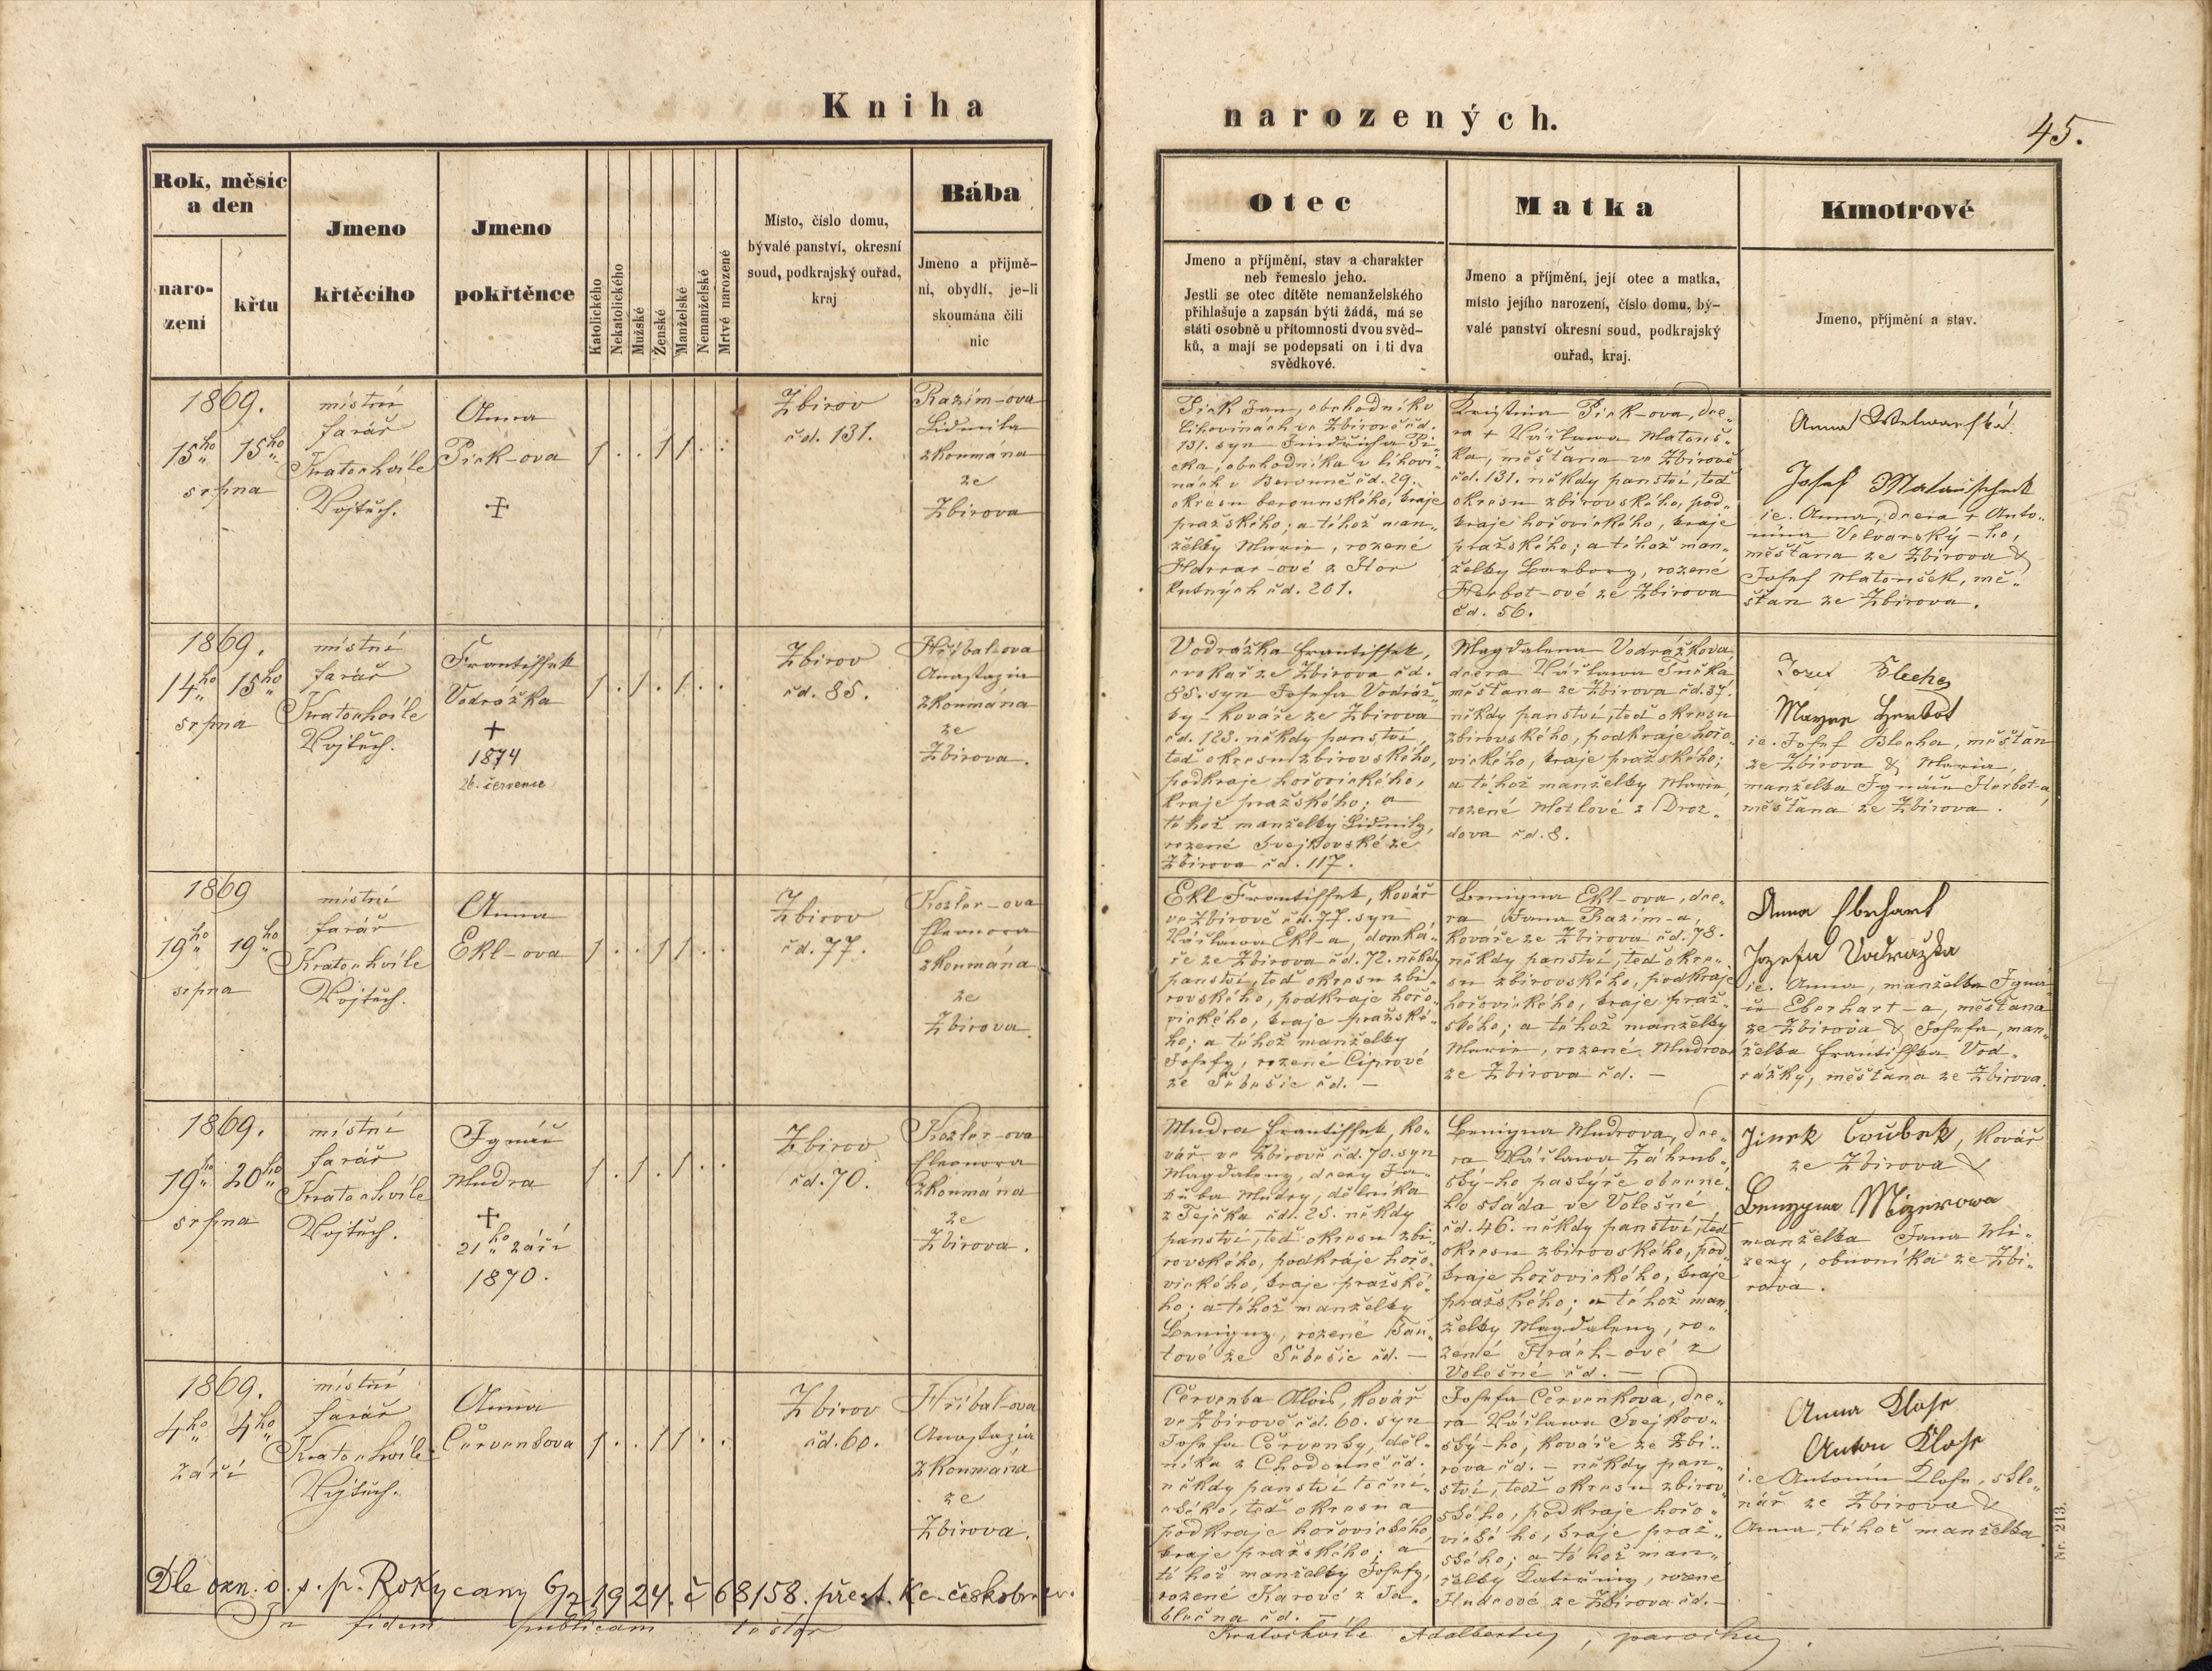 Kniha
narozených.
45.
Rok, měsíc
a den
naro-
zení
křtu
Jmeno
křtěcího
Jmeno
pokřtěnce
Katolického
Nekatolického
Mužské
Ženské
Manželské
Nemanželské
Mrtvé narozené
Místo, číslo domu,
bývalé panství, okresní
soud, podkrajský ouřad,
kraj
Bába
Jmeno a přijmě-
ní, obydlí, je-li
skoumána čili
nic
Otec
Jmeno a příjmění, stav a charakter
neb řemeslo jeho.
Jestli se otec dítěte nemanželského
přihlašuje a zapsán býti žádá, má se
státi osobně u přítomnosti dvou svěd-
ků, a mají se podepsati on i ti dva
svědkové.
Matka
Jmeno a příjmění, její otec a matka,
místo jejího narození, číslo domu, bý-
valé panství okresní soud, podkrajský
ouřad, kraj.
Kmotrové
Jmeno, příjmění a stav.
1869.
15ho 15ho
srpna
místní
farář
Kratochvíle
Vojtěch.
Anna
Pick-ova
+
1 . . 1 1 . .
Zbirov
čd. 131.
Razím-ova
Lidmila
zkoumána
ze
Zbirova
Pick Jan, obchodník v
lihovinách ve Zbirově čd.
131. syn Jindřicha Pi-
cka, obchodníka v lihovi-
nách v Berouně čd. 29.
okresu berounského, kraje
pražského; a téhož man-
želky Marie, rozené
Harrar-ové z Hor
kutných čd. 201.
Kristina Pick-ova, dce-
ra + Václava Matouš-
ka, měšťana ve Zbirově
čd. 131. někdy panství, teď
okresu zbirovského, pod-
kraje hořovického, kraje
pražského; a téhož man-
želky Barbory, rozené
Herbot-ové ze Zbirova
čd. 56.
Anna Welwarská
Josef Matauschek
i.e. Anna, dcera + Anto-
nína Velvarský-ho,
měšťana ze Zbirova &
Josef Matoušek, mě-
šťan ze Zbirova.
1869.
14ho 15ho
srpna
místní
farář
Kratochvíle
Vojtěch.
Františsek
Vodrážka
+
1874
26. července
1 . 1 . 1 . .
Zbirov
čd. 85.
Hříbal-ova
Anastazia
zkoumána
ze
Zbirova.
Vodrážka Františsek,
cvokař ze Zbirova čd.
85. syn Josefa Vodráž-
ky - kováře ze Zbirova
čd. 128. někdy panství,
teď okresu zbirovského,
podkraje hořovického,
kraje pražského; a
téhož manželky Lidmily,
rozené Svejkovské ze
Zbirova čd. 117.
Magdalena Vodrážkova,
dcera Václava Tučka
měšťana ze Zbirova čd. 37.
někdy panství, teď okresu
zbirovského, podkraje hořo-
vického, kraje pražského;
a téhož manželky Marie,
rozené Motlové z Droz-
dova čd. 8.
Herbot
i.e. Josef Blecha, měšťan
ze Zbirova & Maria,
manželka Ignáce Herbot-a,
měšťana ze Zbirova.
1869
19ho 19ho
srpna
místní
farář
Kratochvíle
Vojtěch.
Anna
Ekl-ova
1 . . 1 1 . .
Zbirov
čd. 77.
Kozler-ova
Eleonora
zkoumána
ze
Zbirova
Ekl Františsek, kovář
ve Zbirově čd. 77. syn
Václava Ekl-a, domká-
ře ze Zbirova čd. 72. někdy
panství, teď okresu zbi-
rovského, podkraje hořo-
vického, kraje pražské-
ho; a téhož manželky
Josefy, rozené Ciprové
ze Sebešic čd. —
Benigna Ekl-ova, dce-
ra Jana Razím-a,
kováře ze Zbirova čd. 78.
někdy panství, teď okre-
su zbirovského, podkraje
hořovického, kraje praž-
ského; a téhož manželky
Marie, rozené Mudrové
ze Zbirova čd. —
Anna Eberhart
Jozefa Vodražka
i.e. Anna, manželka Igná-
ce Eberhart-a, měšťana
ze Zbirova & Josefa, man-
želka Františka Vod-
rážky, měšťana ze Zbirova.
1869.
19ho 20ho
srpna
místní
farář
Kratochvíle
Vojtěch.
Ignác
Mudra
+
21ho září
1870.
1 . 1 . 1 . .
Zbirov
čd. 70.
Kozler-ova
Eleonora
zkoumána
ze
Zbirova.
Mudra Františsek, ko-
vář ve Zbirově čd. 70. syn
Magdaleny, dcery Ja-
kuba Mudry, dělníka
z Tejčka čd. 25. někdy
panství, teď okresu zbi-
rovského, podkraje hořo-
vického, kraje pražské-
ho; a téhož manželky
Benigny, rozené
ze Sebešic čd. —
Benigna Mudrova, dce-
ra Václava Záhrub-
ský-ho pastýře obecne-
ho stáda ve Volešné
čd. 46. někdy panství, teď
okresu zbirovského, pod-
kraje hořovického, kraje
pražského; a téhož man-
želky Magdaleny, ro-
zené Hrách-ové z
Volešné čd. —
Jinek Čoubek, kovář
ze Zbirova &
Benigna Mizerowa
manželka Jana Mi-
zery, obuvníka ze Zbi-
rova.
1869.
4ho 4ho
září
místní
farář
Kratochvíle
Vojtěch.
Anna
Červenkova
1 . . 1 1 . .
Zbirov
čd. 60.
Hříbal-ova
Anastazia
zkoumána
ze
Zbirova.
Červenka Alois, kovář
ve Zbirově čd. 60. syn
Josefa Červenky, děl-
níka z Chodouně čd.
někdy panství točni-
ckého, teď okresu a
podkraje hořovického,
kraje pražského; a
téhož manželky Josefy,
rozené Karové z Ja-
blečna čd. —
Josefa Červenkova, dce-
ra Václava Svejkov-
ský-ho, kováře ze Zbi-
rova čd. — někdy pan-
ství, teď okresu zbirov-
ského, podkraje hořo-
vického, kraje praž-
ského; a téhož man-
želky Kateřiny, rozené
Hudcové ze Zbirova čd. —
Anna Klose
Anton Klose
i.e Antonín Klose, skle-
nář ze Zbirova &
Anna, téhož manželka
Dle ozn. o. s. p. Rokycany 6/2 1924. č 68158. přest. k c. českobr. ev.
In fidem publicam testor
Kratochvíle Adalbertus, parochus.
Nr. 213.